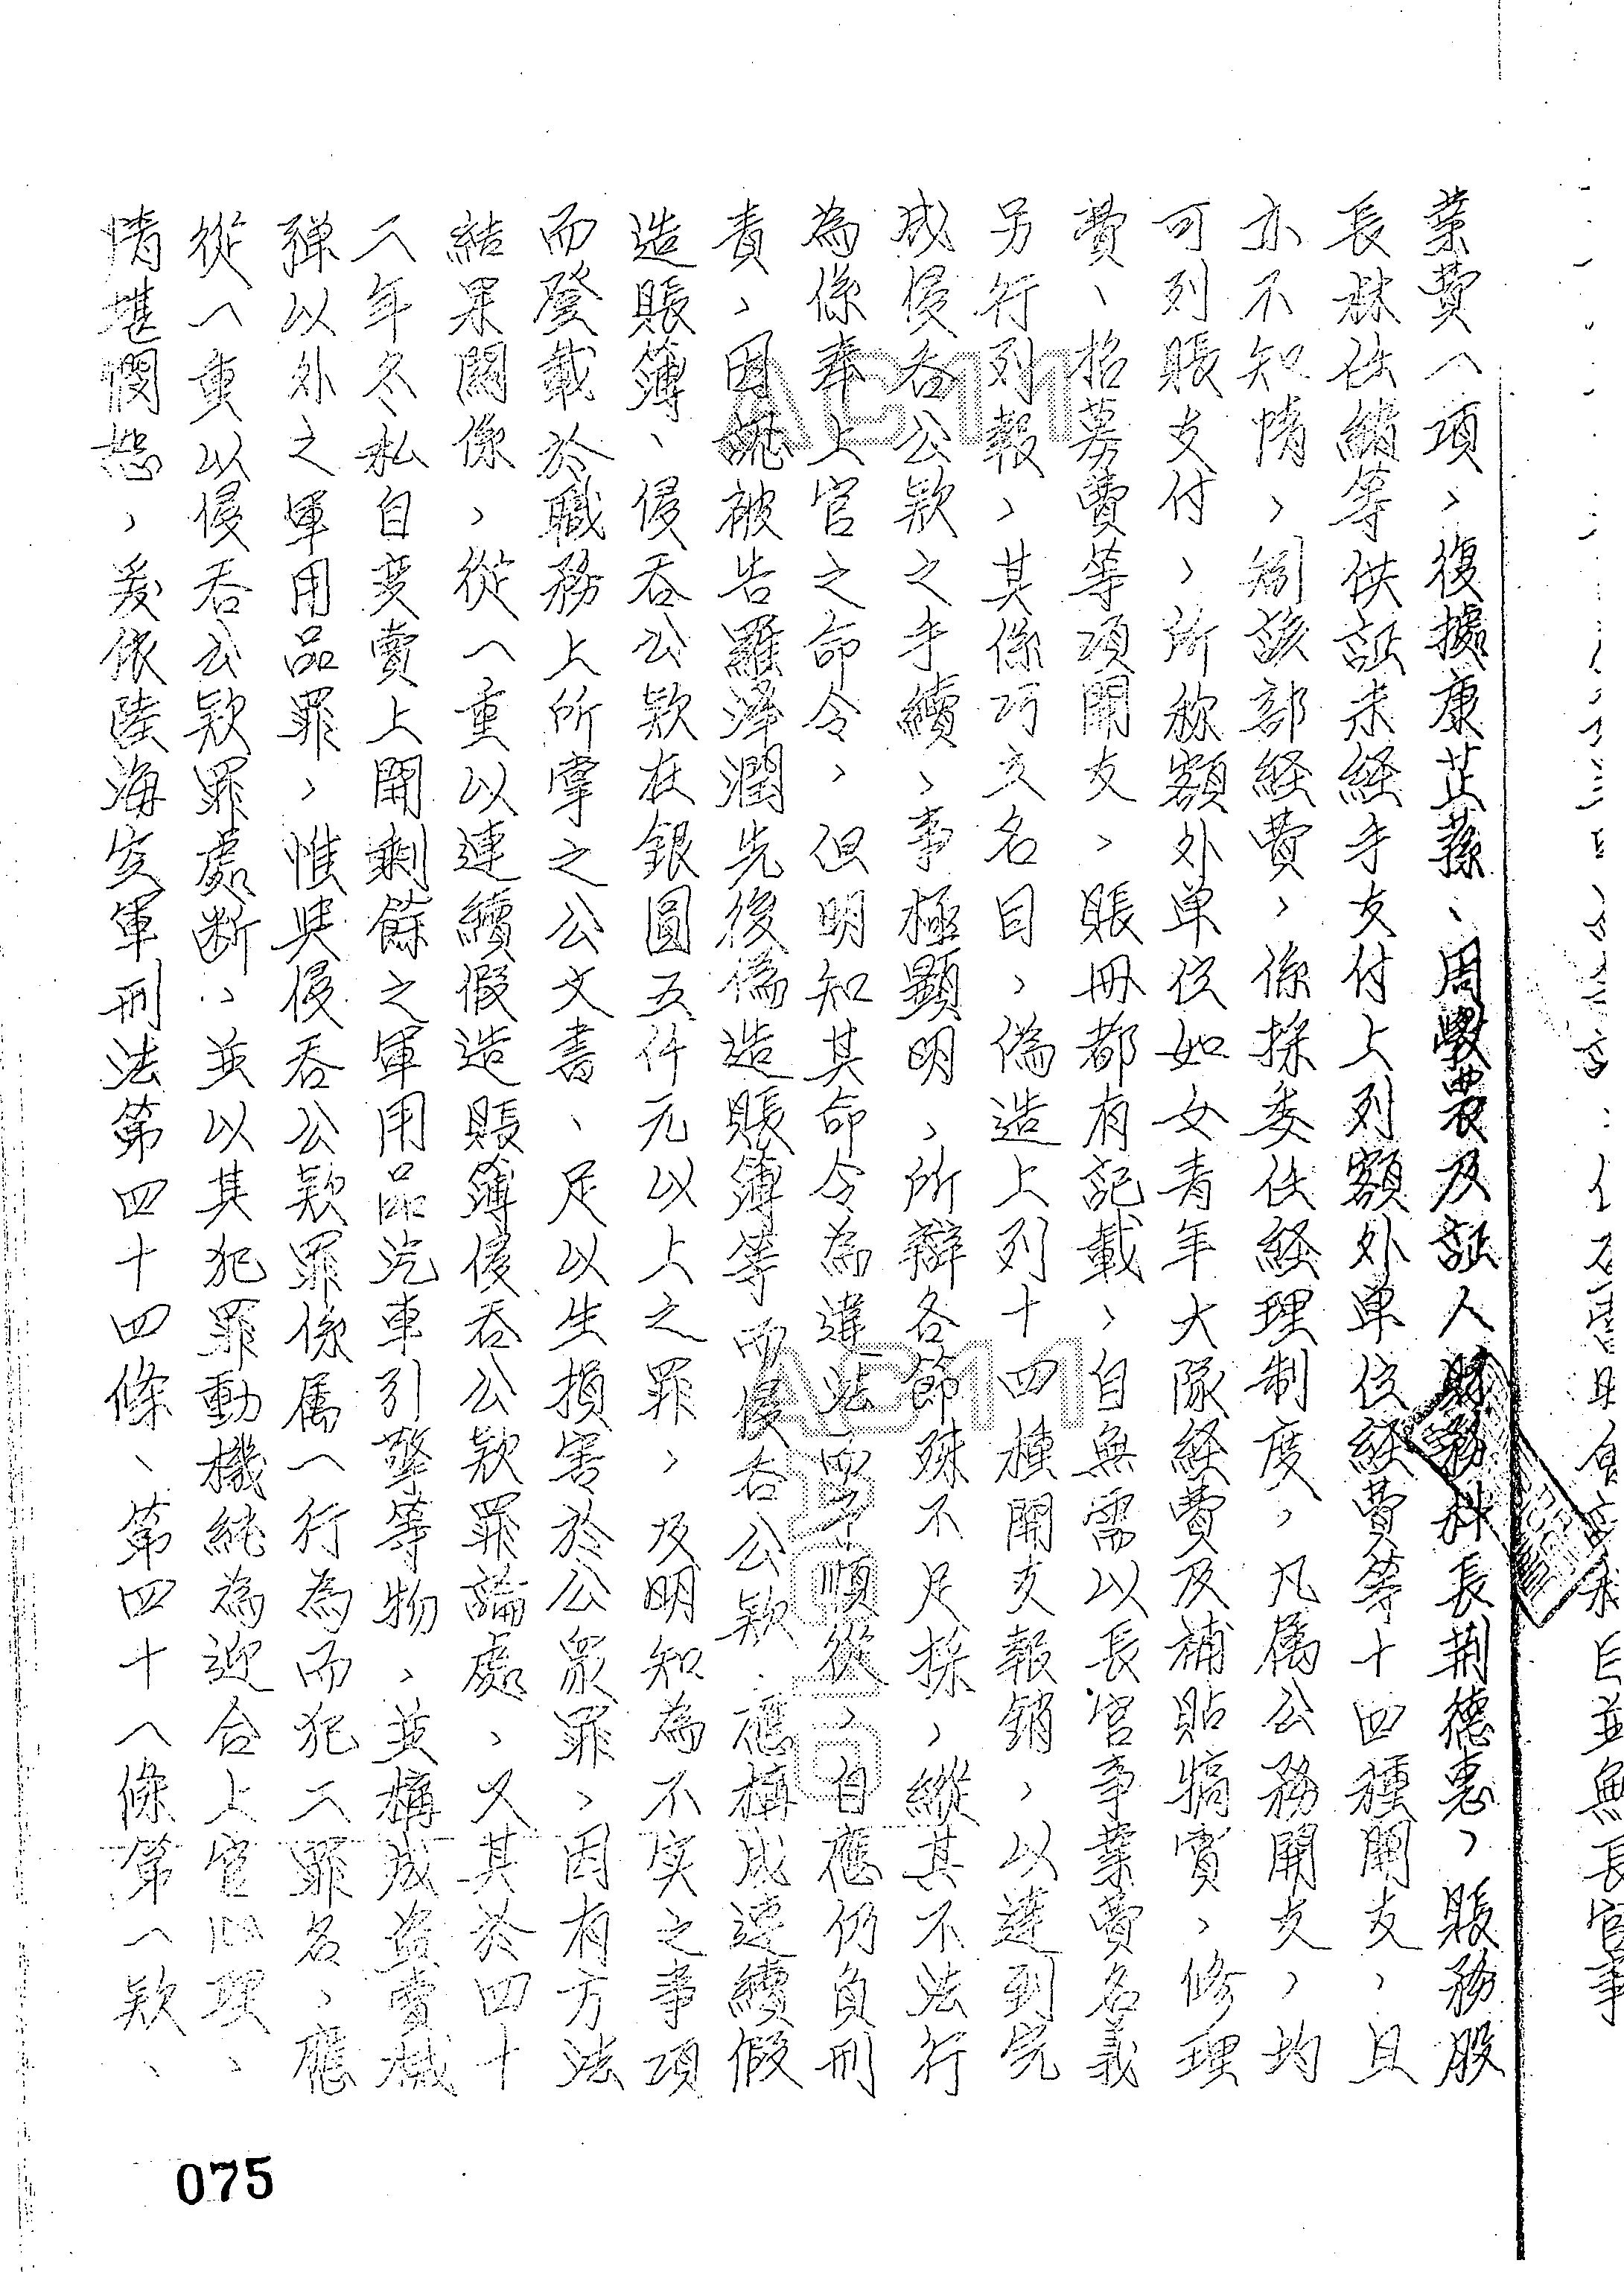 業費一項，復據康芷蓀、周學農及証人財務科長荆德惠，賬務股
長林仕綃等供証未経手支付上列額外单位経費等十四種開支，且
亦不知情，徇該部経費，係採委任経理制度，凡属公務開支，均
可列賬支付，所称額外单位如女青年大隊経費及補貼犒賞，修理
費、招募費等項開支，賬冊都有記載，自無需以長官事業費名義
另行列報，其係巧立名目，偽造上列十四種開支報銷，以達到完
成侵吞公款之手續，事極顯明，所辯各節殊不足採，縱其不法行
為係奉上官之命令，但明知其命令為違法而予順從，自應仍負刑
責，因認被告羅澤潤先後偽造賬簿等而侵吞公款，應構成連續假
造賬簿、侵吞公款在銀圓五仟元以上之罪，及明知為不实之事項
而登載於職務上所掌之公文書、足以生損害於公眾罪，因有方法
結果關係，從一重以連續假造賬簿侵吞公款罪論處，又其於四十
二年冬私自变賣上開剩餘之軍用品汽車引擎等物，並構成盗賣械
彈以外之軍用品罪，惟與侵吞公款罪係属一行為而犯二罪名，應
從一重以侵吞公款罪處断，並以其犯罪動機純為迎合上官心理、
情堪憫恕，爰依陸海空軍刑法第四十四條、第四十一條第一款、
075